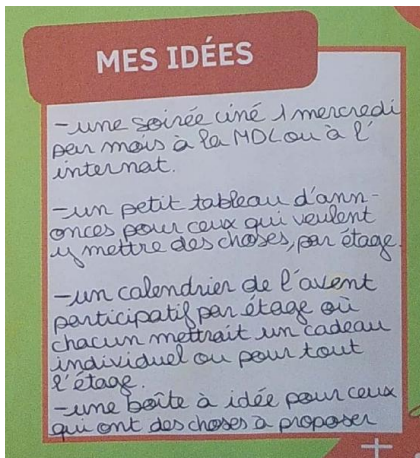 MES IDÉES
- une soirée ciné 1 mercredi
par mois à la MDL ou à l'
internat.
- un petit tableau d'ann-
onces pour ceux qui veulent
y mettre des choses, par étage.
- un calendrier de l'avent
participatif par étage où
chacun mettrait un cadeau
individuel ou pour tout
l'étage.
- une boîte à idée pour ceux
qui ont des choses à proposer
+